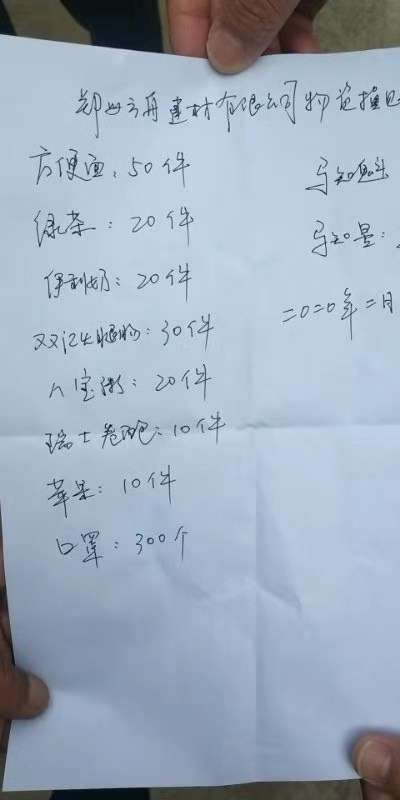 郑州方舟建材有限公司物资捐
方便面：50件
绿茶：20件
伊利奶：20件
双汇火腿肠：30件
八宝粥：20件
瑞士卷：10件
苹果：10件
口罩：300个
二〇二〇年二月